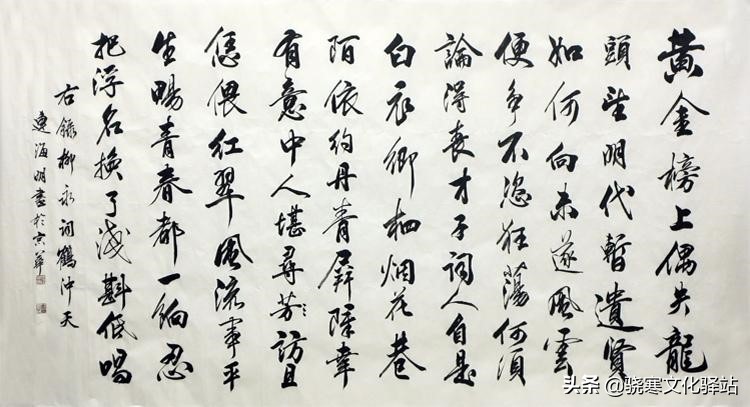 黃金榜上偶失龍
頭望明代暫遺賢
如何向未遂風雲
便爭不恣狂蕩何須
論得喪才子詞人自是
白衣卿相烟花巷
陌依約丹青屏障幸
有意中人堪尋芳訪且
恁偎紅翠風流事平
生暢青春都一餉忍
把浮名換了淺斟低唱
右錄柳永詞鶴沖天
海明書於京華
头条 @骁寒文化驿站